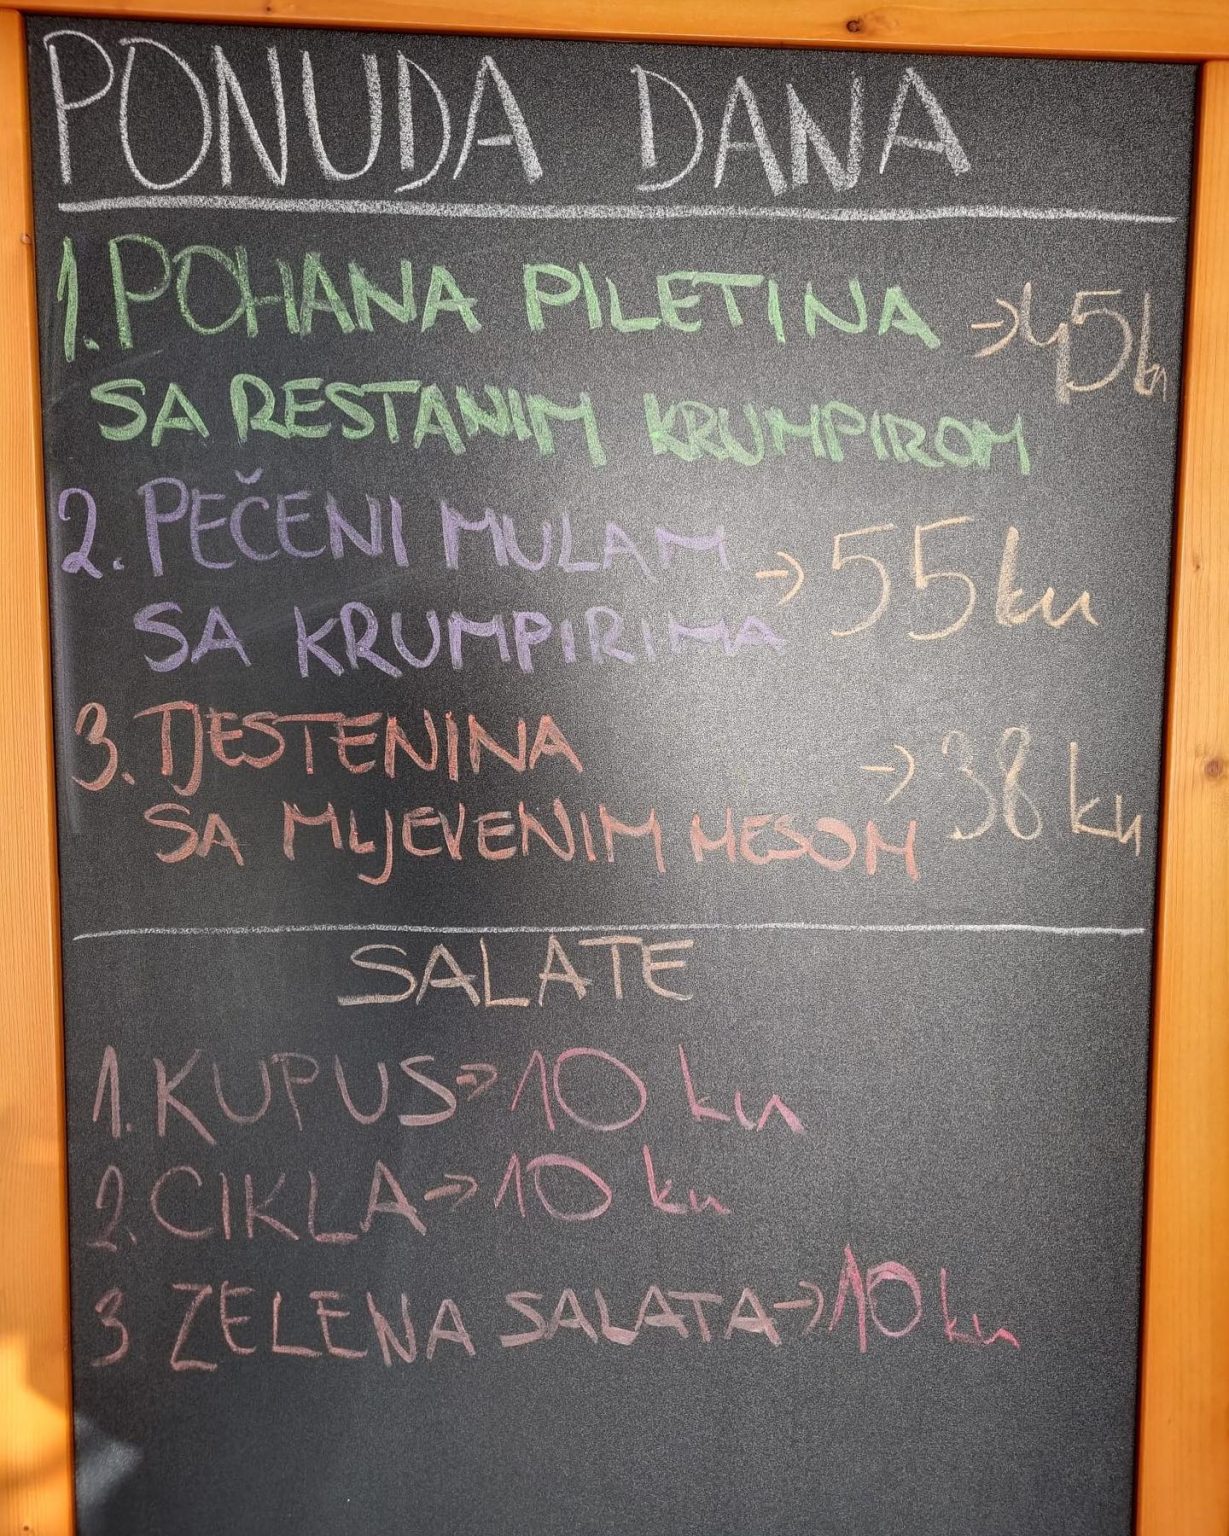 PONUDA DANA
1. POHANA PILETINA → 45 kn
SA RESTANIM KRUMPIROM
2. PEČENI MULAM → 55 kn
SA KRUMPIRIMA
3. TJESTENINA → 38 kn
SA MLJEVENIM MESOM
SALATE
1. KUPUS → 10 kn
2. CIKLA → 10 kn
3 ZELENA SALATA → 10 kn